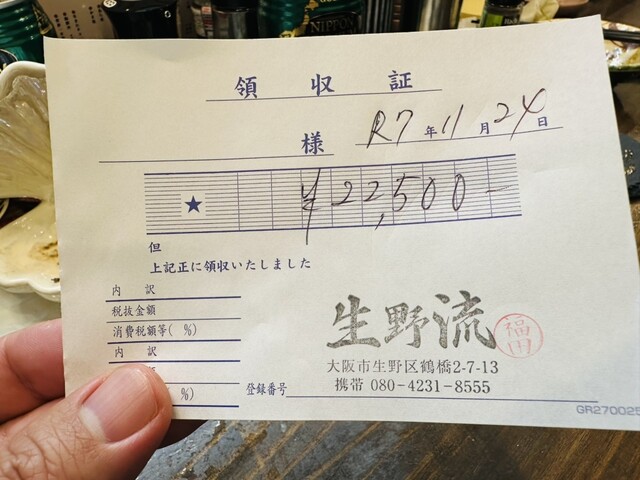 NIPPON
領 収 証
様
R7年11月24日
★ ¥22,500-
但
上記正に領収いたしました
内 訳
税抜金額
消費税額等( %)
内 訳
%)
生野流
福田
大阪市生野区鶴橋2-7-13
携帯 080-4231-8555
登録番号
GR270025